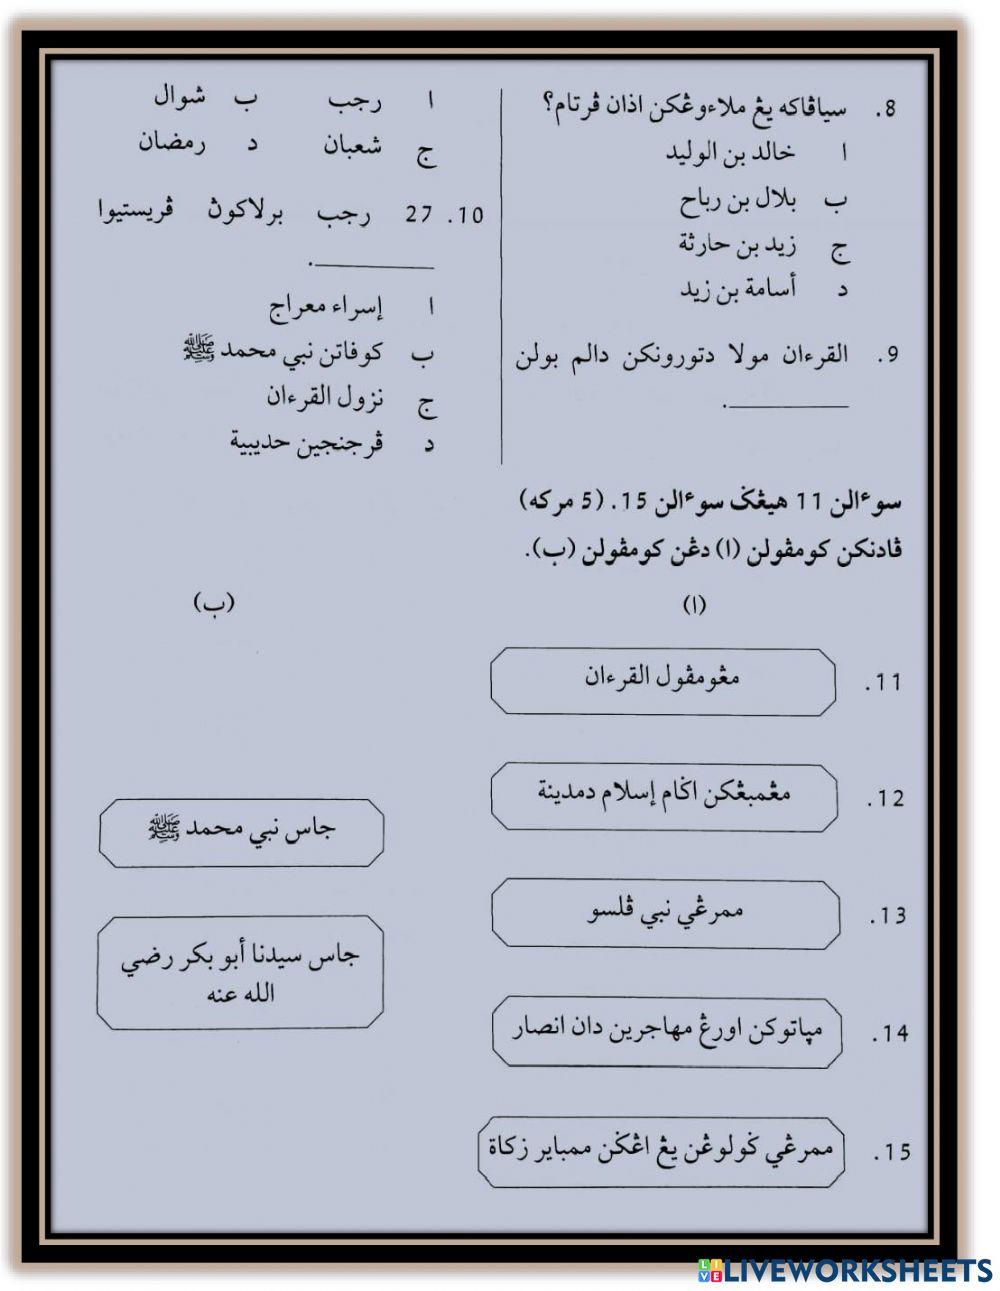 8. سياڤاكه يڠ ملاءوڠكن اذان ڤرتام؟
ا خالد بن الوليد
ب بلال بن رباح
ج زيد بن حارثة
د أسامة بن زيد
9. القرءان مولا دتورونكن دالم بولن
__________.
ا رجب ب شوال
ج شعبان د رمضان
10. 27 رجب برلاكوڽ ڤريستيوا
__________.
ا إسراء معراج
ب كوفاتن نبي محمد ﷺ
ج نزول القرءان
د ڤرجنجين حديبية
سوءالن 11 هيڠݢ سوءالن 15. (5 مركه)
ڤادنكن كومڤولن (ا) دڠن كومڤولن (ب).
(ا) (ب)
11. مڠومڤول القرءان
12. مڠمبڠكن اݢام إسلام دمدينة
13. ممرڠي نبي ڤلسو
14. مڽاتوكن اورڠ مهاجرين دان انصار
15. ممرڠي ݢولوڠن يڠ اڠݢن ممباير زكاة
جاس نبي محمد ﷺ
جاس سيدنا أبو بكر رضي
الله عنه
LIVEWORKSHEETS